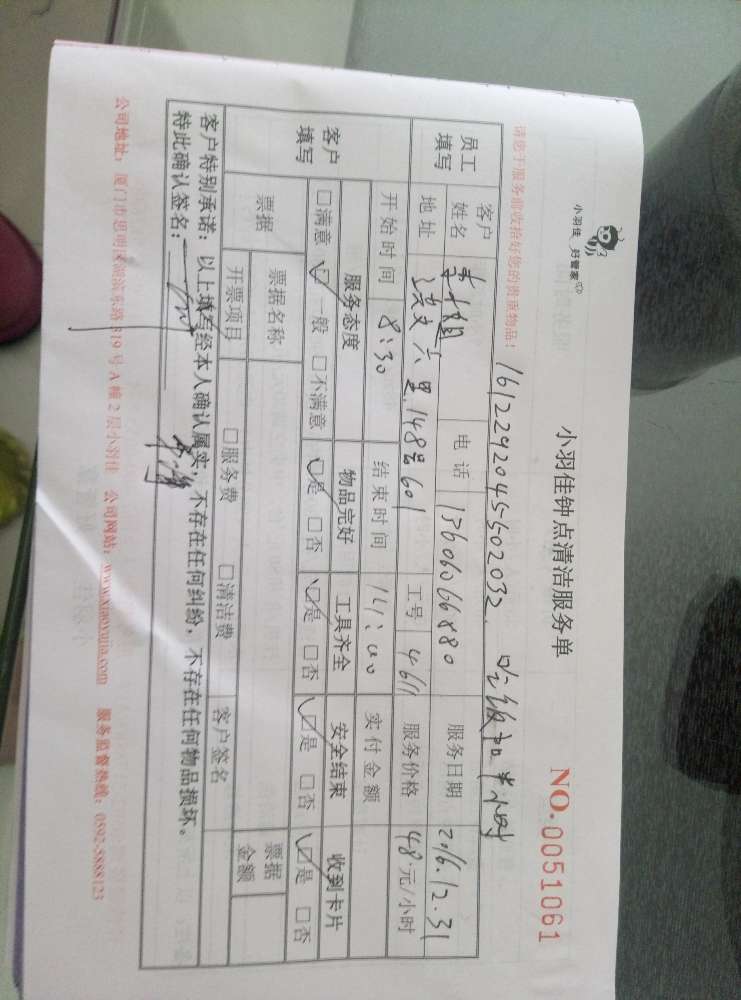 小羽佳 好管家
小羽佳钟点清洁服务单
NO. 0051061
请您于服务前收拾好您的贵重物品！
1612292045502032.
员工填写
客户姓名
电话 13606066880
服务日期 2016.12.31
地址 莲文六里148号601
工号 4611
服务价格 48.元/小时
开始时间 8:30
结束时间
实付金额
客户填写
服务态度 物品完好 工具齐全 安全结束 收到卡片
□满意 ☑一般 □不满意 ☑是 □否 ☑是 □否 ☑是 □否 ☑是 □否
票据
票据名称
票据金额
开票项目 □服务费 □清洁费 客户签名
客户特别承诺：以上填写经本人确认属实，不存在任何纠纷，不存在任何物品损坏。
特此确认签名：
公司地址：厦门市思明区湖滨东路319号A幢2层小羽佳 公司网站：www.xiaoyujia.com 服务监督热线：0592-5888123